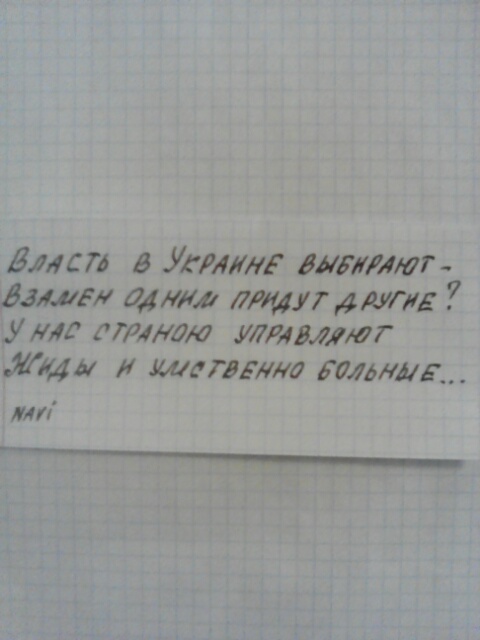 Власть в Украине выбирают -
Взамен одним придут другие?
У нас страною управляют
Жиды и умственно больные...
NAVi